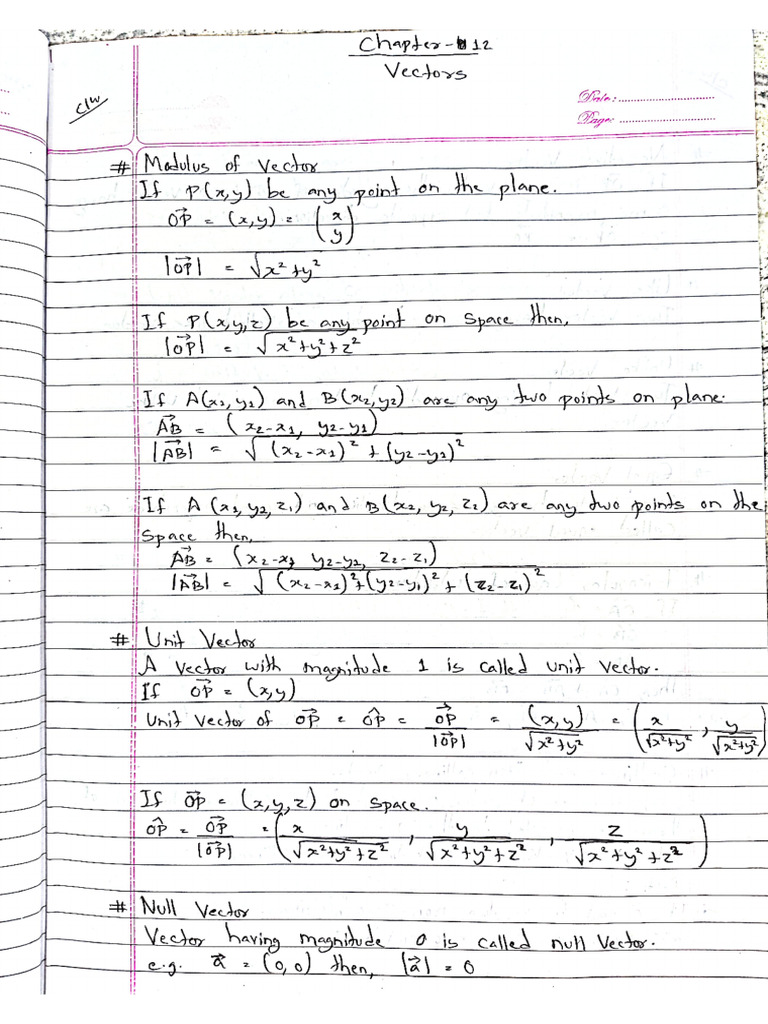 Chapter-12
Vectors
C/W
Date: ..............................
Page: ..............................
# Modulus of vector
If P(x,y) be any point on the plane.
$\vec{OP}$ = (x,y) = $\begin{pmatrix} x \\ y \end{pmatrix}$
|$\vec{OP}$| = $\sqrt{x^2+y^2}$
If P(x,y,z) be any point on space then,
|$\vec{OP}$| = $\sqrt{x^2+y^2+z^2}$
If A(x₁,y₁) and B(x₂,y₂) are any two points on plane.
$\vec{AB}$ = (x₂-x₁, y₂-y₁)
|$\vec{AB}$| = $\sqrt{(x_2-x_1)^2+(y_2-y_1)^2}$
If A (x₁,y₂,z₁) and B(x₂,y₂,z₂) are any two points on the
space then,
$\vec{AB}$ = (x₂-x₁, y₂-y₁, z₂-z₁)
|$\vec{AB}$| = $\sqrt{(x_2-x_1)^2+(y_2-y_1)^2+(z_2-z_1)^2}$
# Unit Vector
A vector with magnitude 1 is called unit vector.
If $\vec{OP}$ = (x,y)
Unit vector of $\vec{OP}$ = $\hat{OP}$ = $\frac{\vec{OP}}{|\vec{OP}|}$ = $\frac{(x,y)}{\sqrt{x^2+y^2}}$ = $\left(\frac{x}{\sqrt{x^2+y^2}}, \frac{y}{\sqrt{x^2+y^2}}\right)$
If $\vec{OP}$ = (x,y,z) on space.
$\hat{OP}$ = $\frac{\vec{OP}}{|\vec{OP}|}$ = $\left(\frac{x}{\sqrt{x^2+y^2+z^2}}, \frac{y}{\sqrt{x^2+y^2+z^2}}, \frac{z}{\sqrt{x^2+y^2+z^2}}\right)$
# Null Vector
Vector having magnitude 0 is called null vector.
e.g. $\vec{a}$ = (0,0) then, |$\vec{a}$| = 0